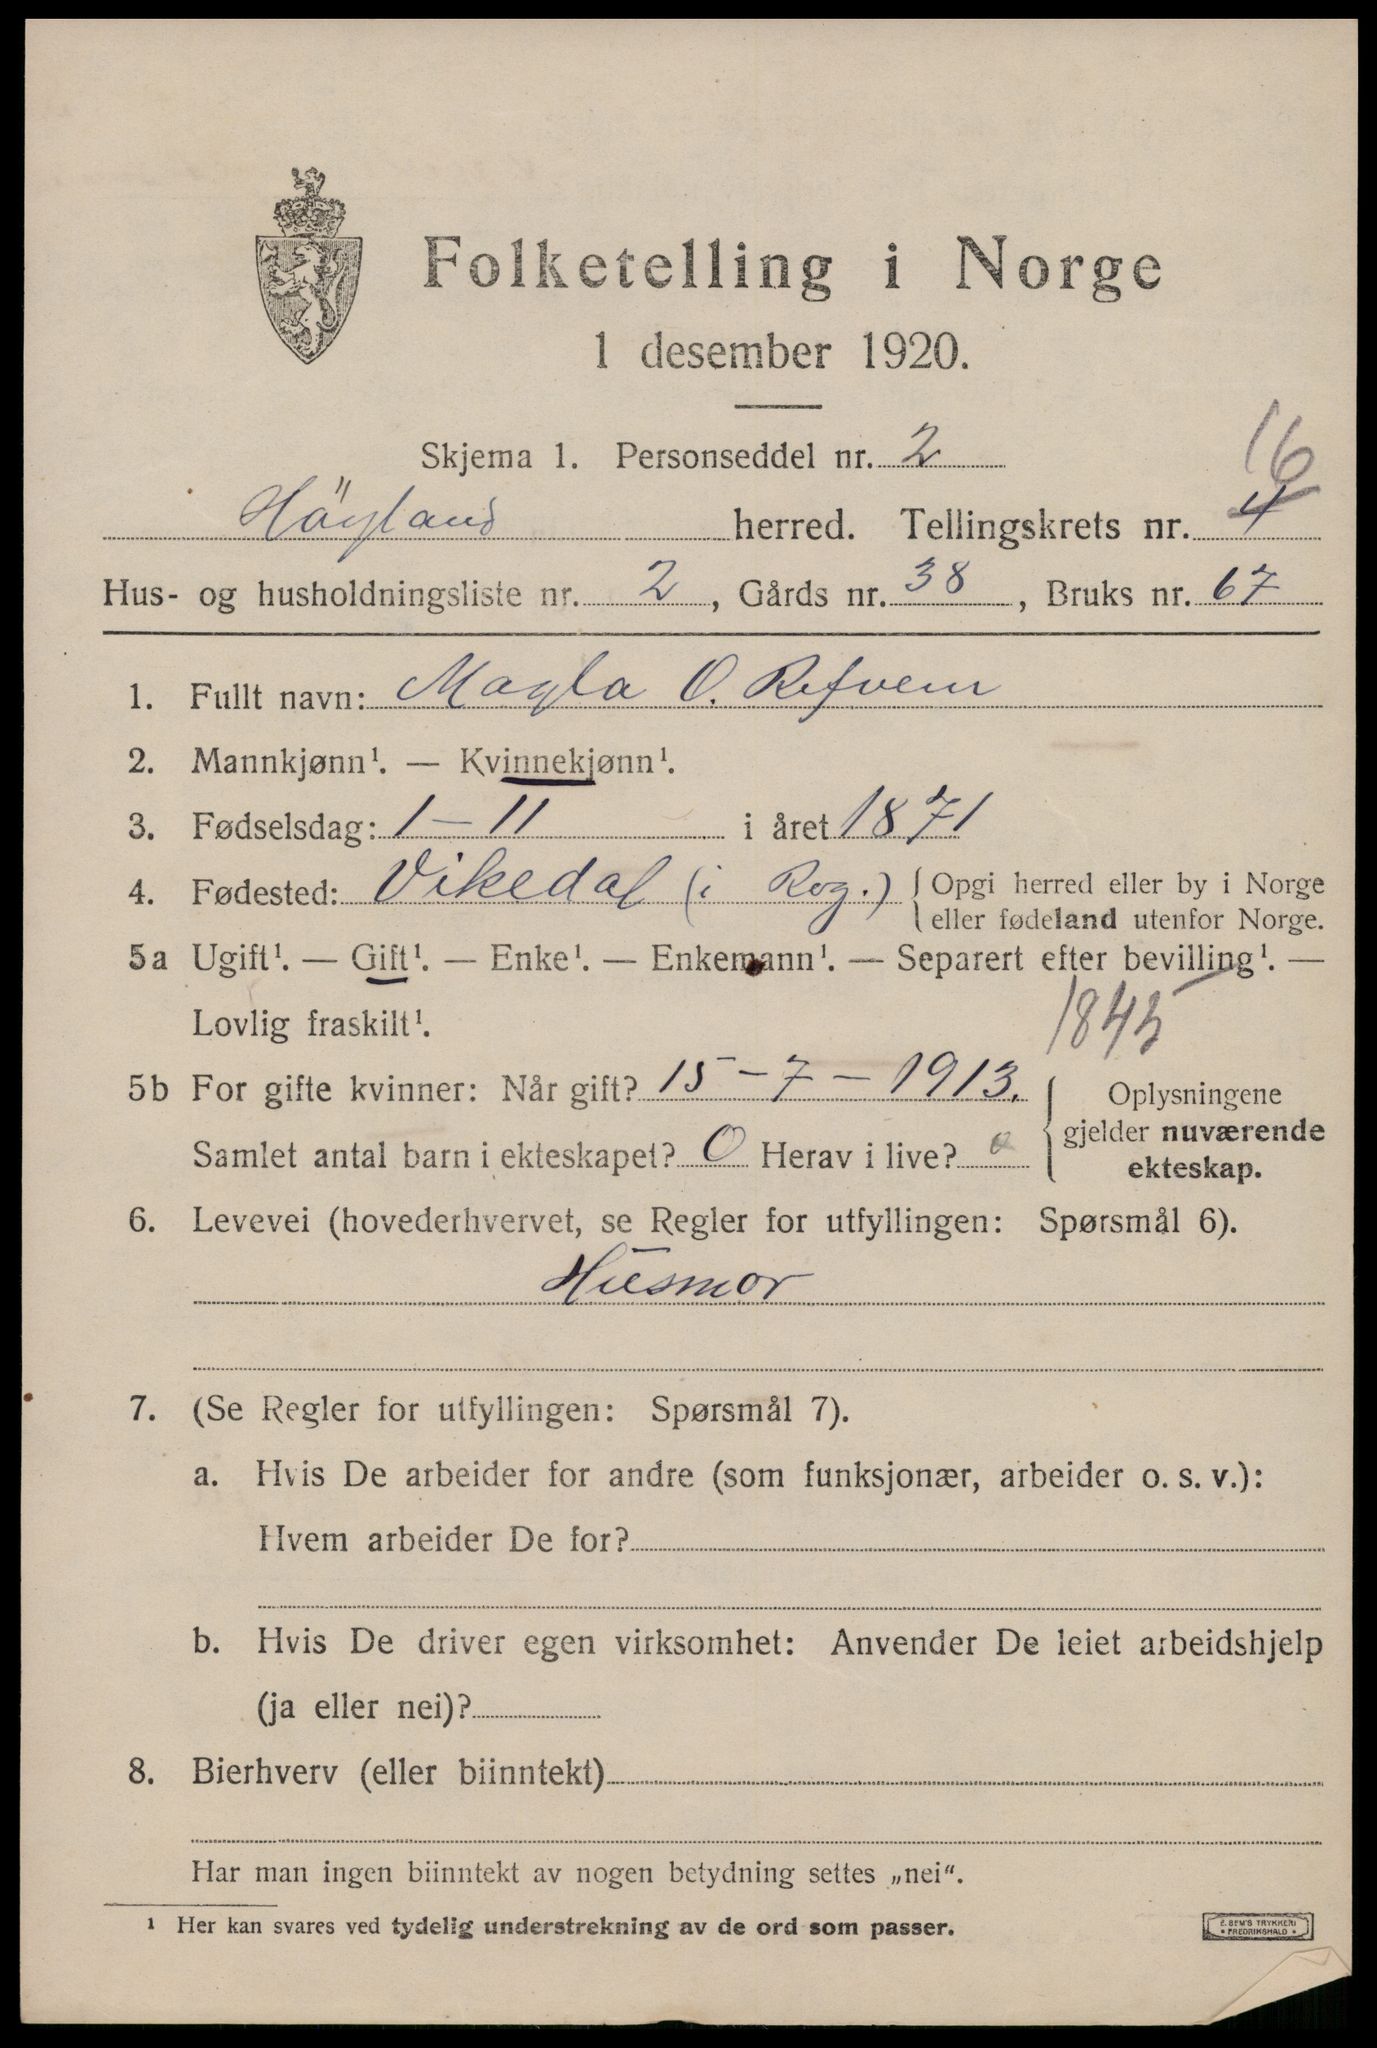 Folketelling i Norge
1 desember 1920.
Skjema 1. Personseddel nr. 2
16
Höyland herred. Tellingskrets nr. 4
Hus- og husholdningsliste nr. 2, Gårds nr. 38, Bruks nr. 67
1. Fullt navn: Magla O. Refvem
2. Mannkjønn¹. — Kvinnekjønn¹.
3. Fødselsdag: 1 — 11 i året 1871
4. Fødested: Vikedal (i Rog.) { Opgi herred eller by i Norge
eller fødeland utenfor Norge.
5a Ugift¹. — Gift¹. — Enke¹. — Enkemann¹. — Separert efter bevilling¹. —
Lovlig fraskilt¹.
1845
5b For gifte kvinner: Når gift? 15 — 7 — 1913. { Oplysningene
gjelder nuværende
Samlet antal barn i ekteskapet? 0 Herav i live? 0
ekteskap.
6. Levevei (hovederhvervet, se Regler for utfyllingen: Spørsmål 6).
Husmor
7. (Se Regler for utfyllingen: Spørsmål 7).
a. Hvis De arbeider for andre (som funksjonær, arbeider o. s. v.):
Hvem arbeider De for?
b. Hvis De driver egen virksomhet: Anvender De leiet arbeidshjelp
(ja eller nei)?
8. Bierhverv (eller biinntekt)
Har man ingen biinntekt av nogen betydning settes „nei“.
¹ Her kan svares ved tydelig understrekning av de ord som passer.
E. SEM'S TRYKKERI
• FREDRIKSHALD •